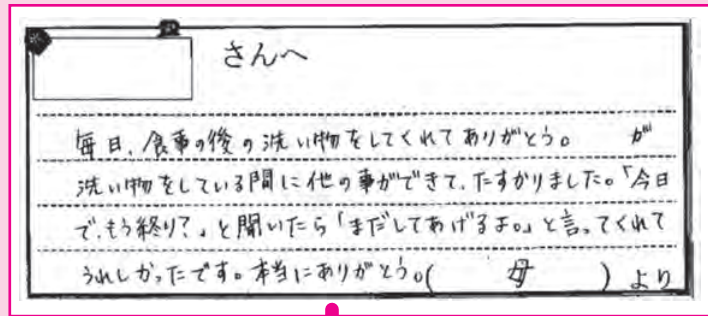 さんへ
毎日、食事の後の洗い物をしてくれてありがとう。 が
洗い物をしている間に他の事ができて、たすかりました。「今日
で、もう終り？」と聞いたら「まだしてあげるよ。」と言ってくれて
うれしかったです。本当にありがとう。( 母 ) より